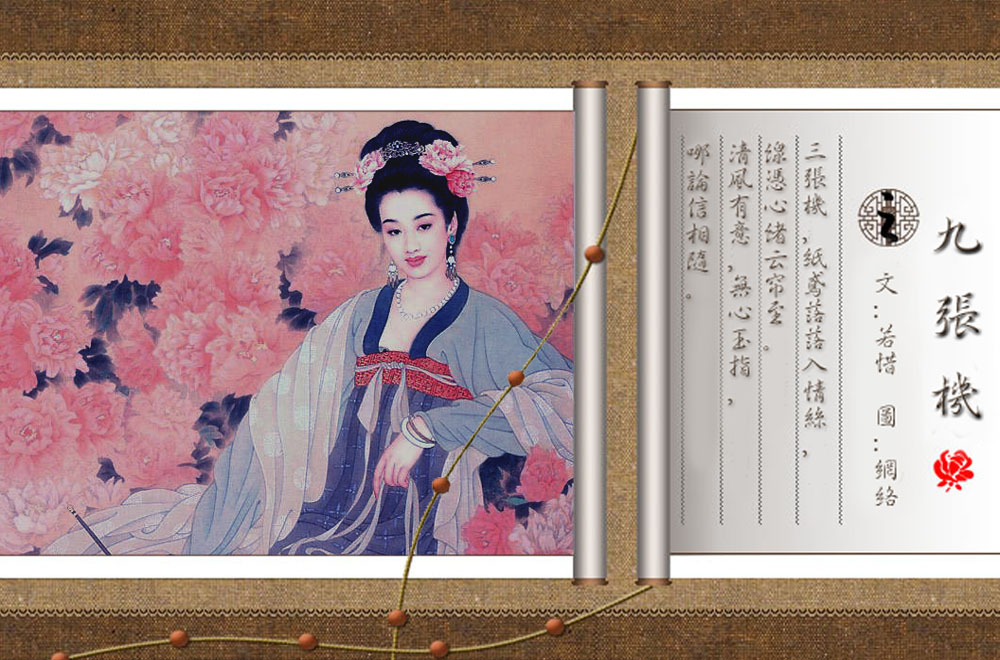 九張機
文：若惜 圖：網絡
三張機，紙鳶落落入情絲，
缐憑心绪云帘至。
清風有意，無心玉指，
哪論信相隨。